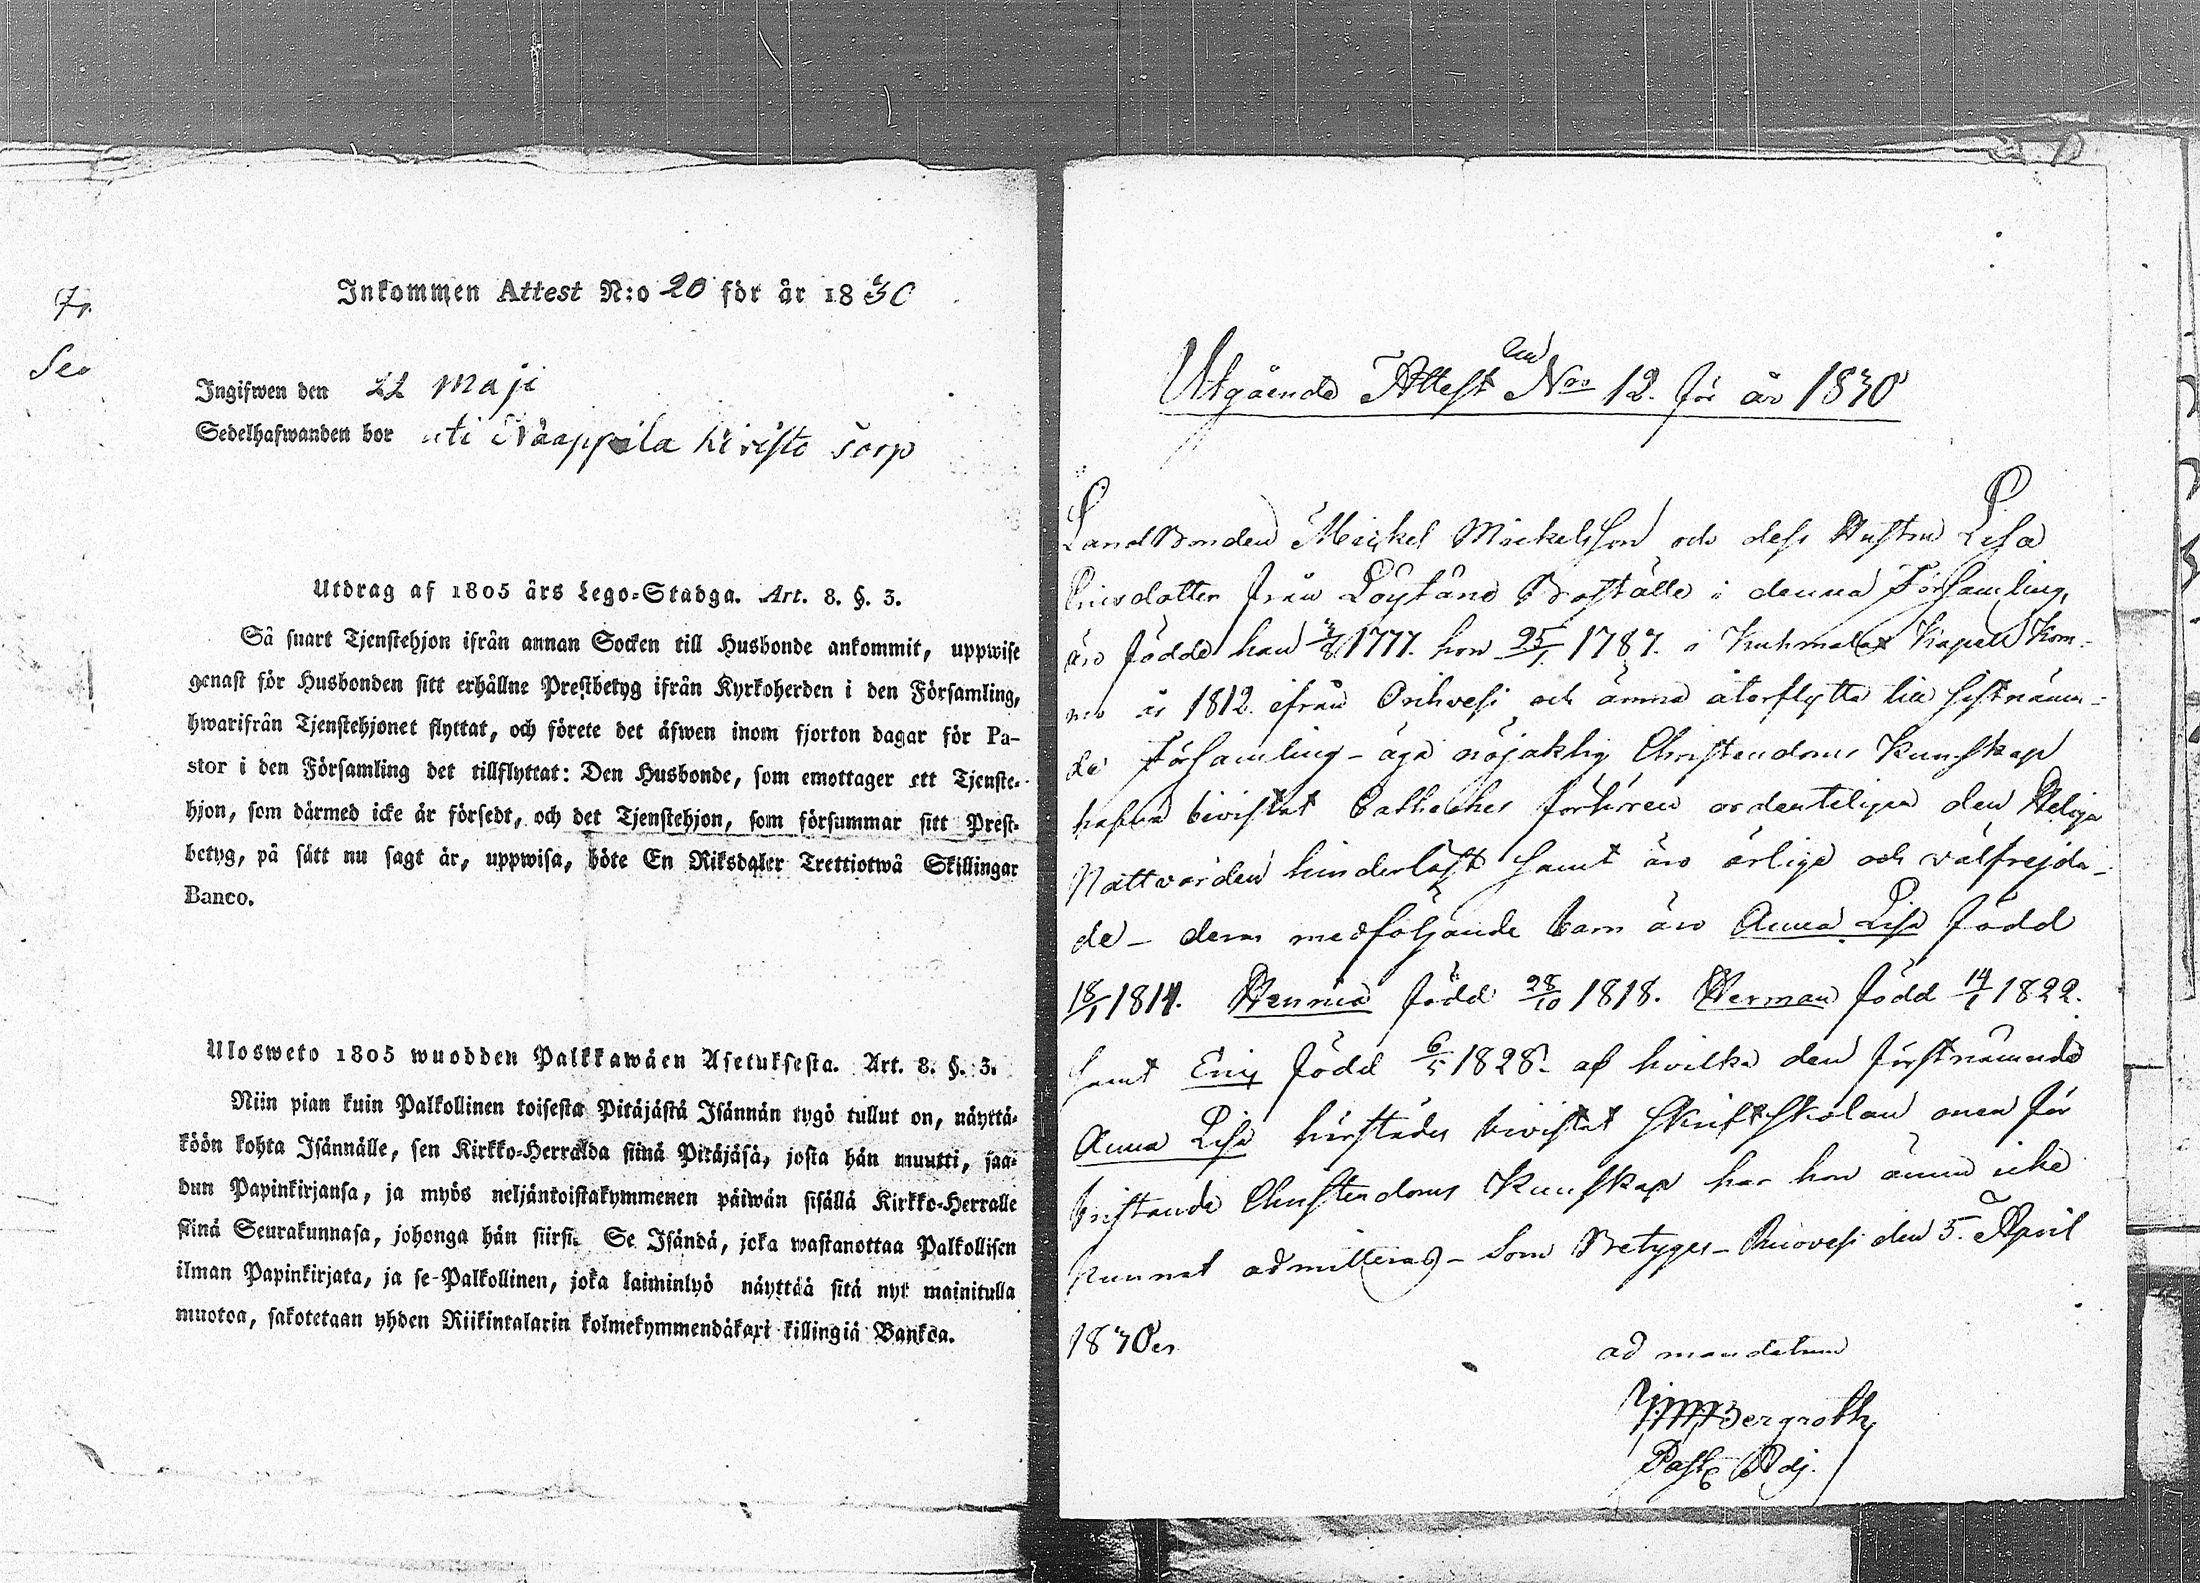 7.
Inkommen Attest N:o 20 för år 1830
Ingifwen den 22 maji
Sedelhafwanden bor uti Näappila Kiristo torp
Utdrag af 1805 års Lego-Stadga. Art. 8. §. 3.
Så snart Tjenstehjon ifrån annan Socken till Husbonde ankommit, uppwise
genast för Husbonden sitt erhållne Prestbetyg ifrån Kyrkoherden i den Församling,
hwarifrån Tjenstehjonet flyttat, och förete det äfwen inom fjorton dagar för Pa-
stor i den Församling det tillflyttat: Den Husbonde, som emottager ett Tjenste-
hjon, som därmed icke är försedt, och det Tjenstehjon, som försummar sitt Prest-
betyg, på sätt nu sagt är, uppwisa, böte En Riksdaler Trettiotwå Skillingar
Banco.
Ulosweto 1805 wuodden Palkkawäen Asetuksesta. Art. 8. §. 3.
Niin pian kuin Palkollinen toisesta Pitäjästä Isännän tygö tullut on, näyttä-
köön kohta Isännälle, sen Kirkko-Herralda siinä Pitäjäsä, josta hän muutti, saa-
dun Papinkirjansa, ja myös neljäntoistakymmenen päiwän sisällä Kirkko-Herralle
siinä Seurakunnasa, johonga hän siirsi. Se Isändä, joka wastanottaa Palkollisen
ilman Papinkirjata, ja se Palkollinen, joka laiminlyö näyttää sitä nyt mainitulla
muotoa, sakotetaan yhden Riikintalarin kolmekymmendäkaxi killingiä Bankoa.
Utgående Attest Nro 12. för år 1830
Landbonden Michel Michelsson och dess Hustru Lisa
Ericsdotter från Löytäne Boställe i denna Församling,
äro födde han 1777. hon 25/1 1787. i Kuhmalax Kapell Kom-
no år 1812 ifrån Orihvesi och ämna återflytta till sistnämn-
de Församling – äga nöjaktig Christendoms Kunskap
hafva bivistat Catheches förhören ordenteligen den Heliga
Nattvarden hinderlöst samt äro ärlige och välfrejda-
de – deras medföljande barn äro Anna Lisa född
18/1 1814. Henrica född 28/10 1818. Herman född 14/1 1822.
samt Eric född 6/5 1828 – af hvilka den förstnämnda
Anna Lisa härstädes bivistat Skriftskolan men för
bristande Christendoms Kunskap har hon ännu icke
kunnat admitteras – Som Betyges – Ruovesi den 5. April
1830
ad mandatum
Bergroth
Past. Adj.